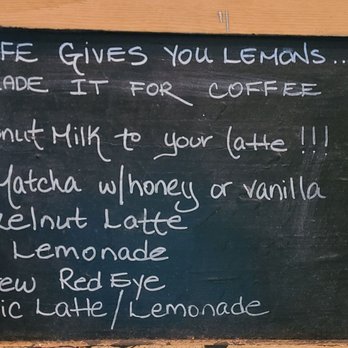 FE GIVES YOU LEMONS...
ADE IT FOR COFFEE
nut Milk to your latte !!!
Matcha w/honey or vanilla
elnut Latte
Lemonade
ew Red Eye
ic Latte/Lemonade